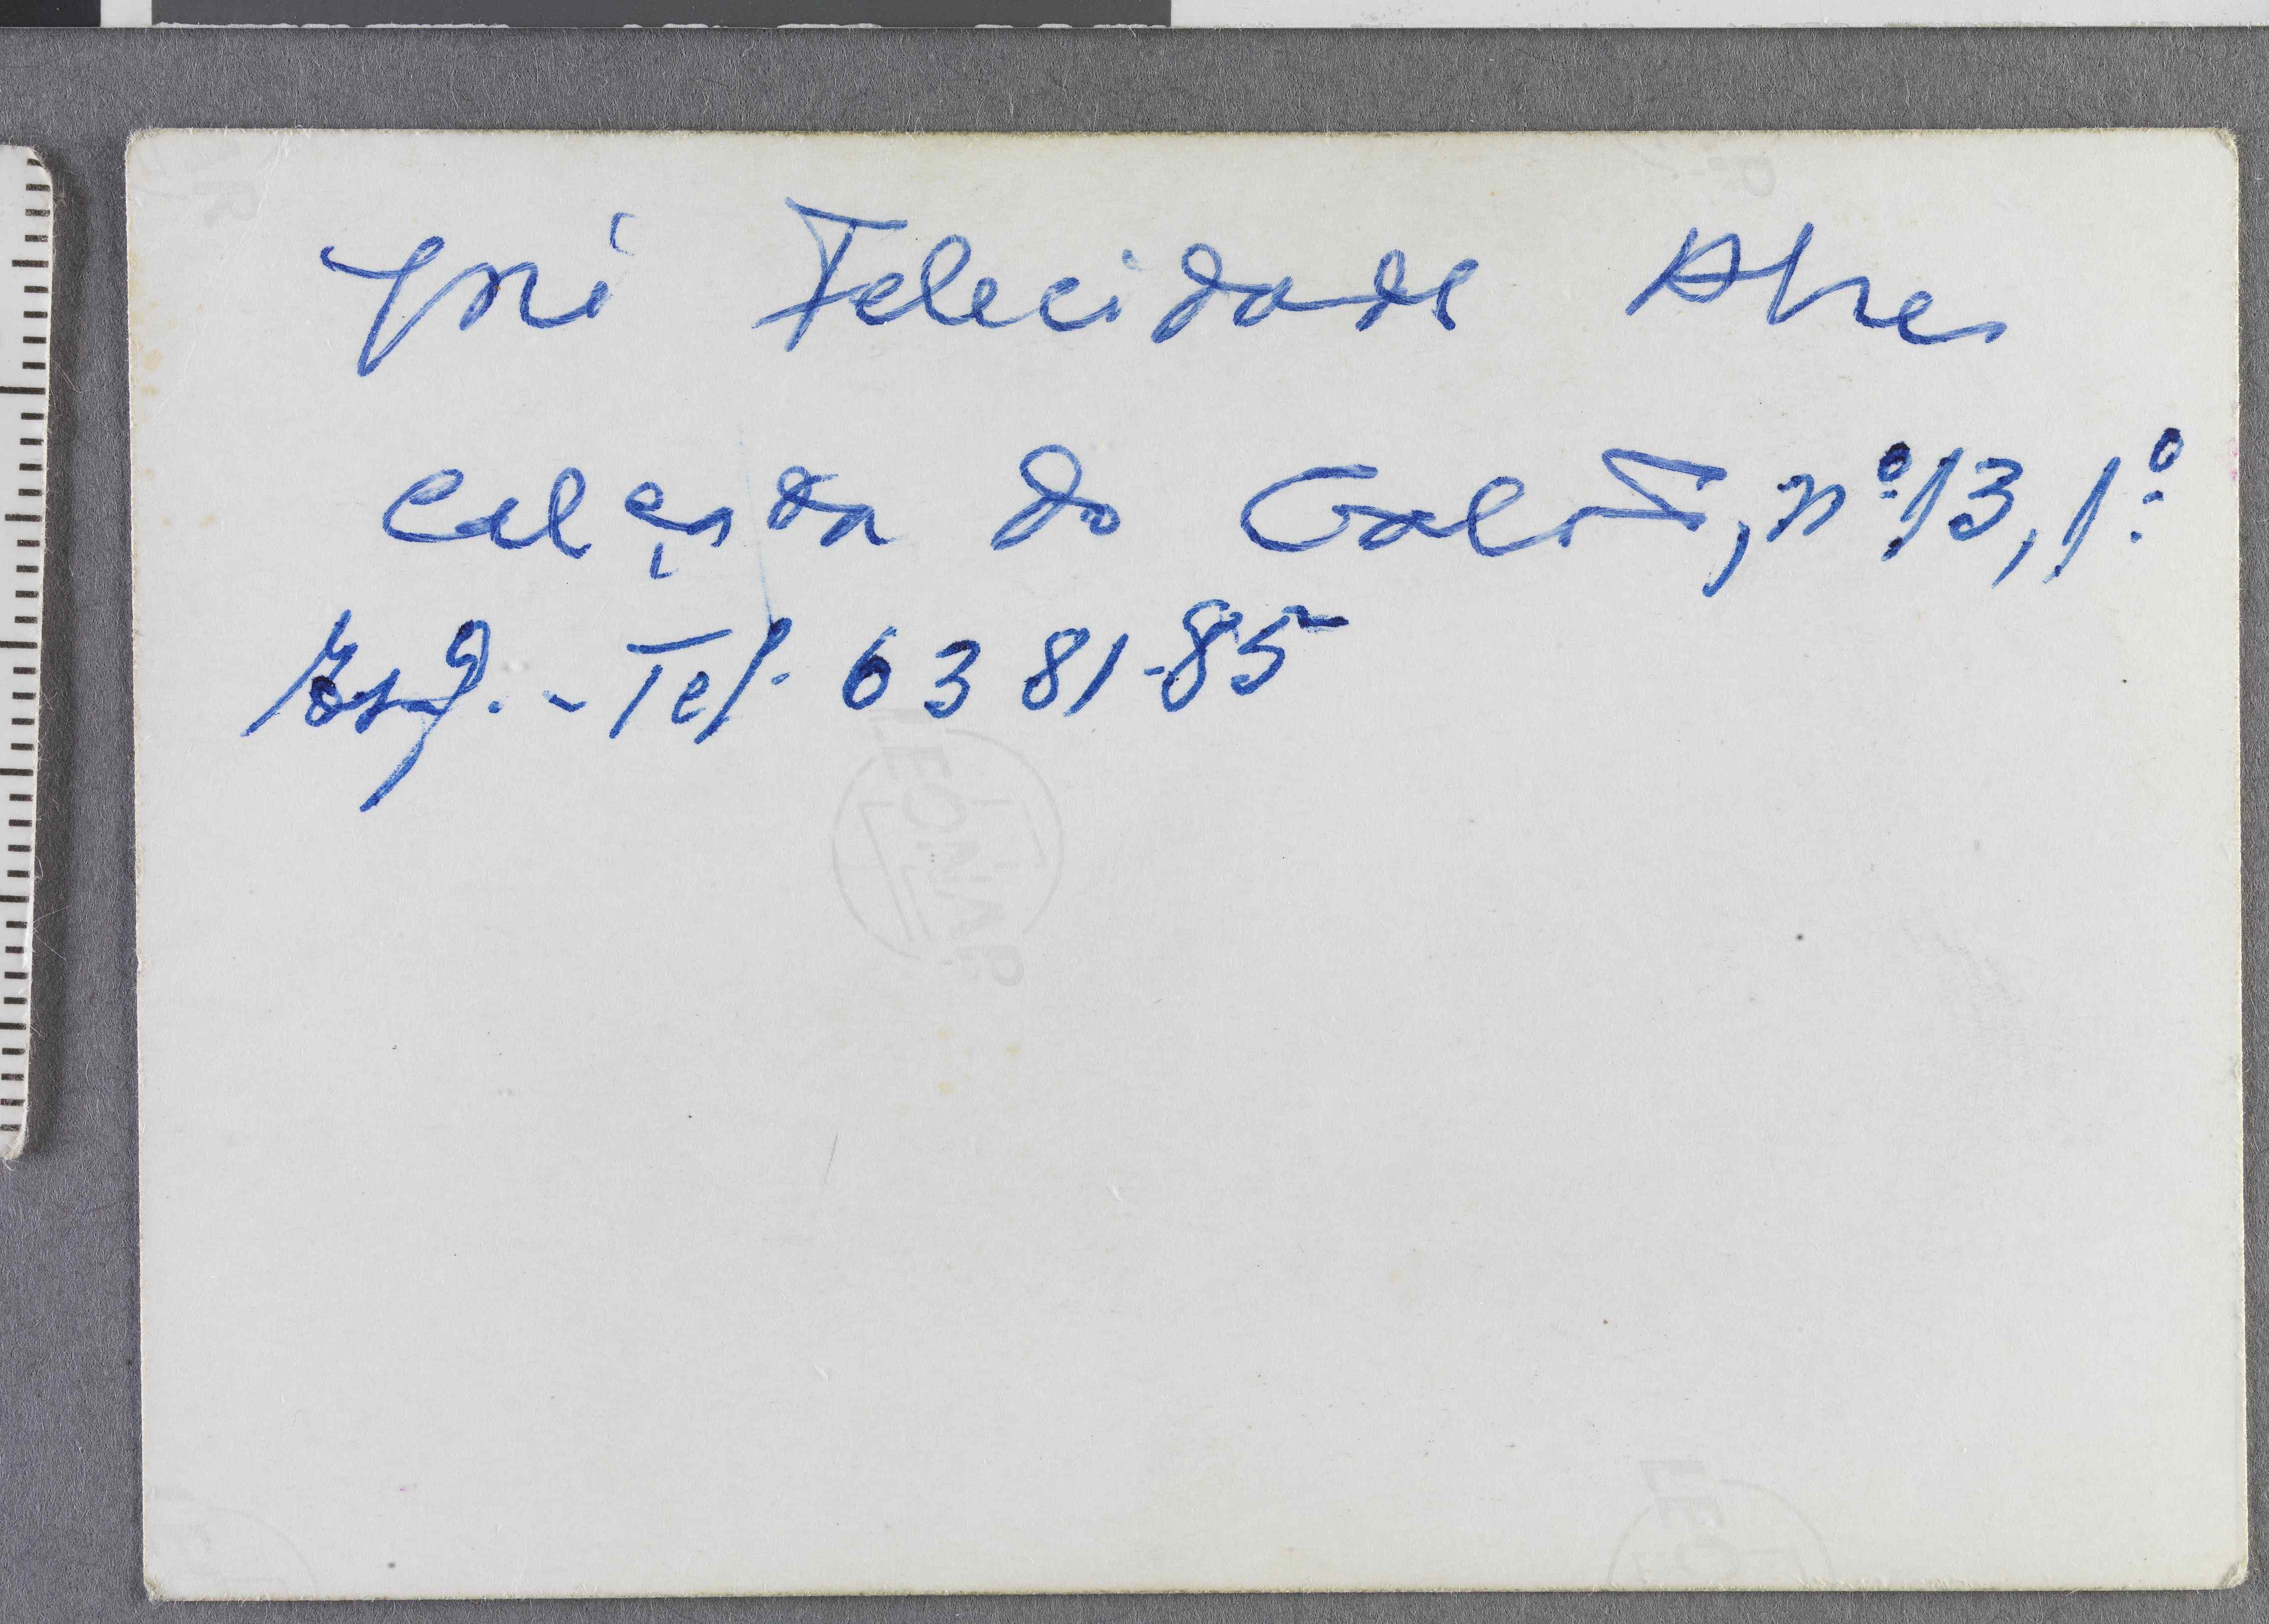 José Felicidade Alves
Calçada do Galvão, nº 13, 1º
Esq. - Tel. 63 81-85
LEONAR